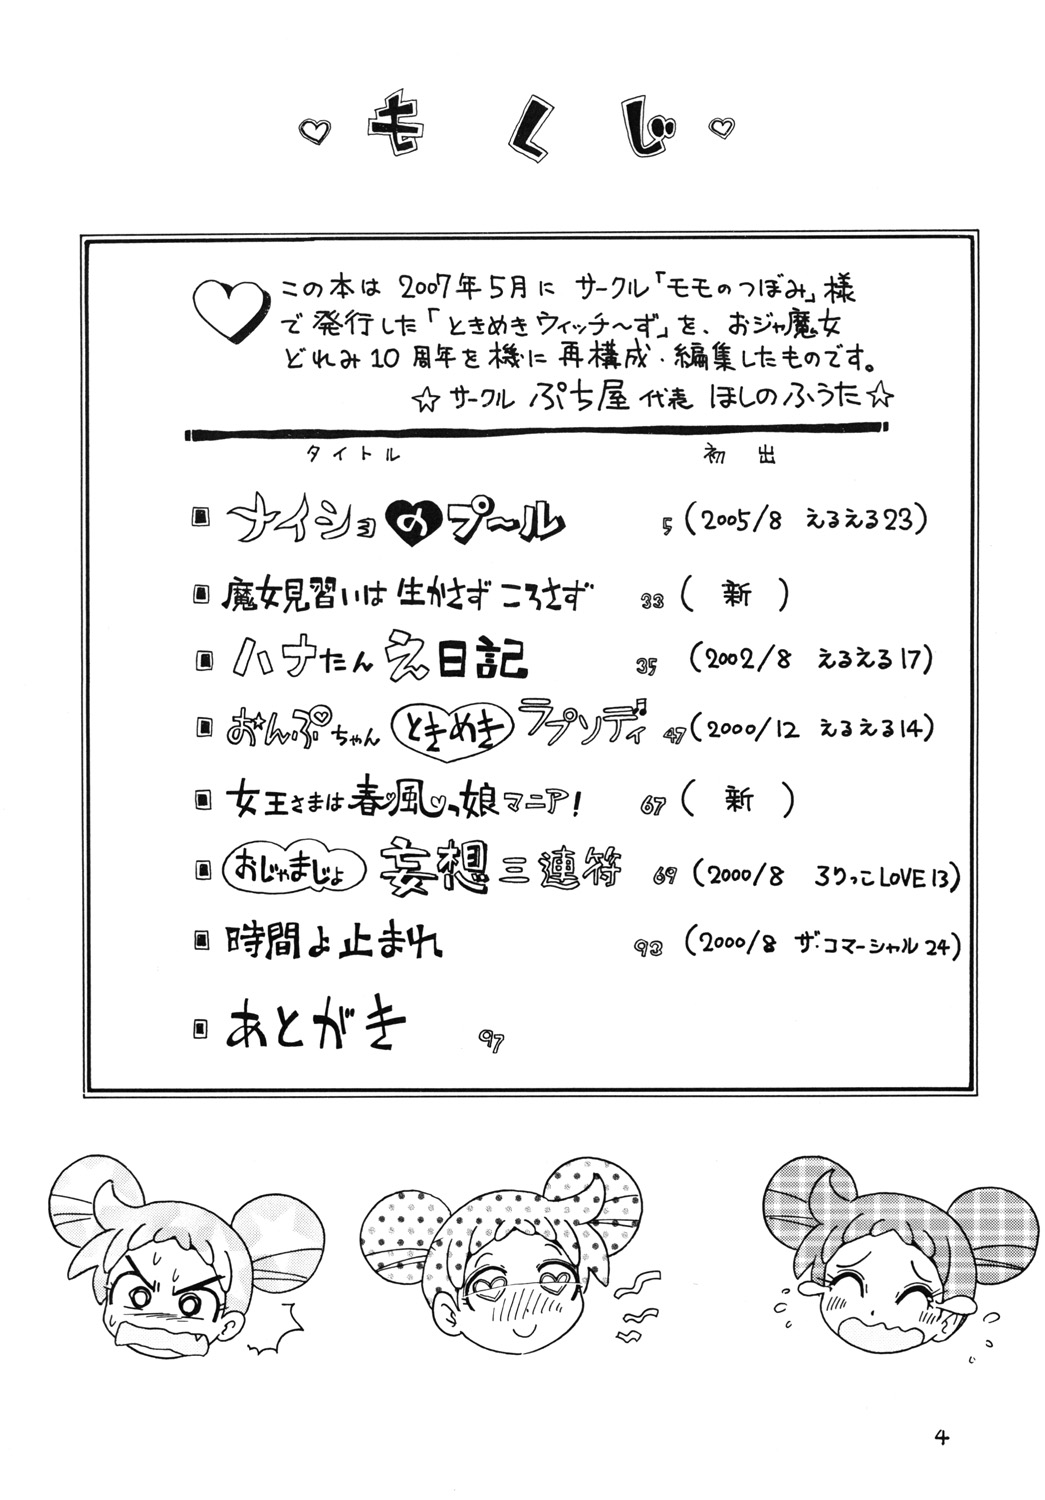 ♡もくじ♡
この本は 2007年5月に サークル「モモのつぼみ」様
で発行した「ときめきウィッチ〜ず」を、おジャ魔女
どれみ10周年を機に再構成・編集したものです。
☆サークル ぷち屋 代表 ほしのふうた☆
タイトル 初出
ナイショのプ〜ル 5 (2005/8 えるえる23)
魔女見習いは生かさずころさず 33 ( 新 )
ハナたんえ日記 35 (2002/8 えるえる17)
おんぷちゃんときめきラプソディ 47 (2000/12 えるえる14)
女王さまは春風っ娘マニア! 67 ( 新 )
おじゃまじょ妄想三連符 69 (2000/8 ろりっこLOVE13)
時間よ止まれ 93 (2000/8 ザ・コマーシャル24)
あとがき 97
4